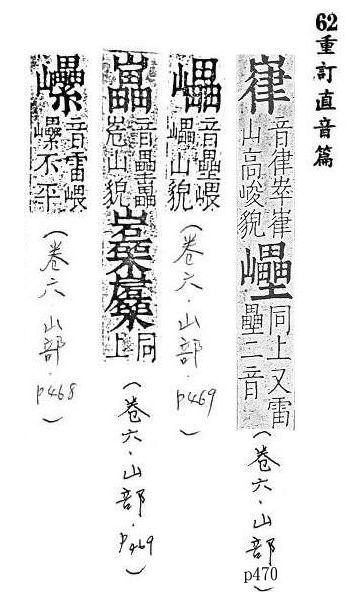 62重訂直音篇
嵂
音律崒嵂
山高峻貌
同上又雷
壘二音
（卷六·山部
p470
）
音壘嵔
山貌
（卷六·山部·
p469
）
音壘
山貌
同
上
（卷六·山部·
p469
）
音雷嵔
不平
（卷六·山部·
p468
）